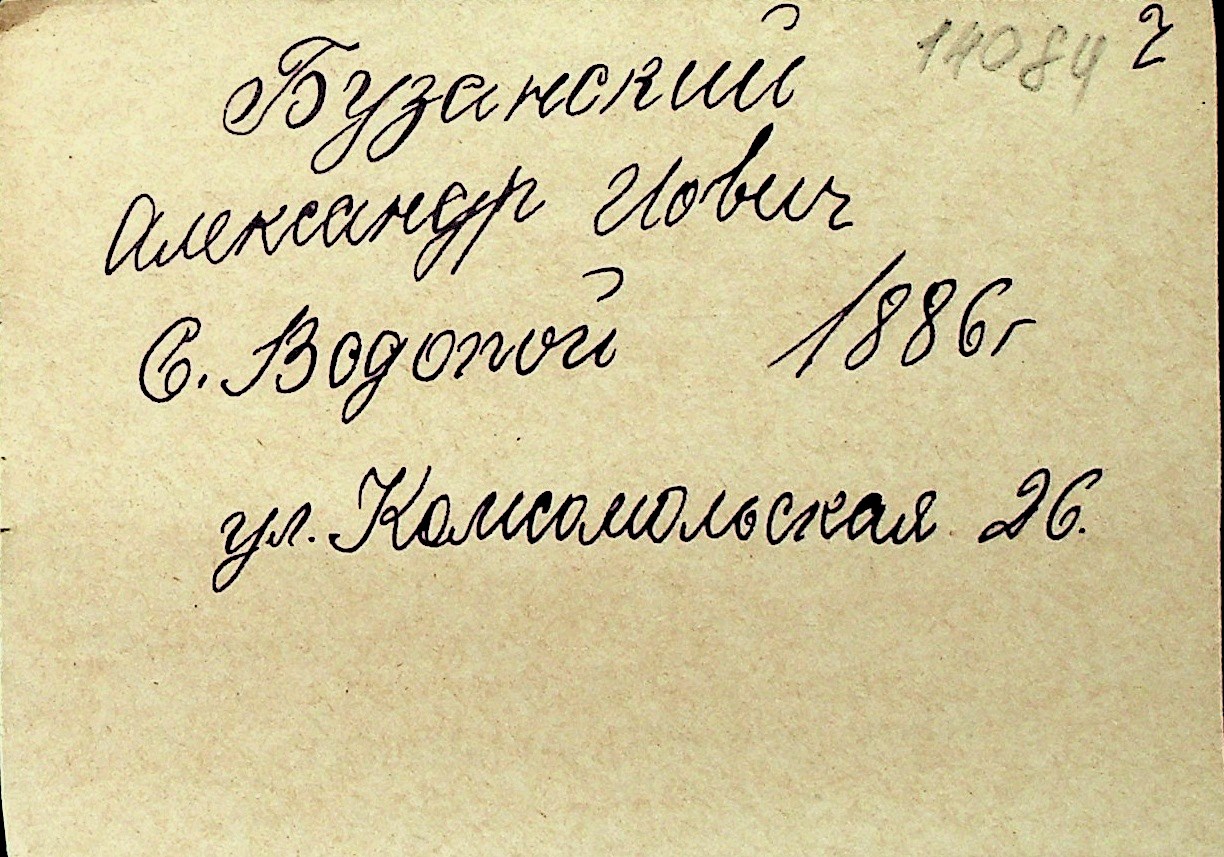 14084 2
Бузанский
Александр Иович
С. Водопой 1886г
ул. Комсомольская 26.